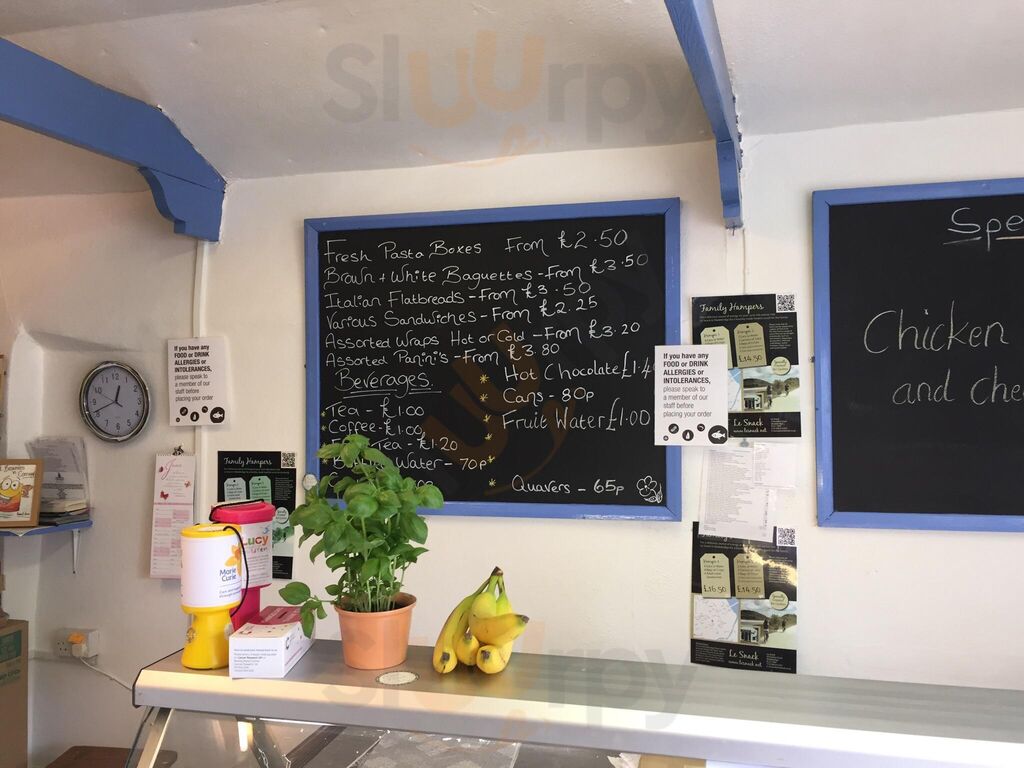 SlUUrpy
Fresh Pasta Boxes From £2.50
Brown + White Baguettes - From £3.50
Italian Flatbreads - From £3.50
Various Sandwiches - From £2.25
Assorted Wraps Hot or Cold - From £3.20
Assorted Panini's - From £3.80
Beverages.
Tea - £1.00
Coffee - £1.00
Tea - £1.20
Water - 70p
Hot Chocolate £1.4
Cans - 80p
Fruit Water £1.00
Quavers - 65p
Spe
Chicken
and che
If you have any
FOOD or DRINK
ALLERGIES or
INTOLERANCES,
please speak to
a member of our
staff before
placing your order
If you have any
FOOD or DRINK
ALLERGIES or
INTOLERANCES,
please speak to
a member of our
staff before
placing your order
Family Hampers
£14.50
Le Snack
Family Hampers
£16.50
£14.50
Le Snack
www.lesnack.net
Marie
Curie
Lucy